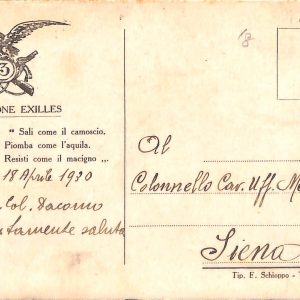 3
18
ONE EXILLES
" Sali come il camoscio.
Piomba come l'aquila.
Resisti come il macigno „
18 Aprile 1930
Col. Dacomo
tamente saluta
Al
Colonnello Cav. Uff. M
Siena
Tip. F. Schioppo -